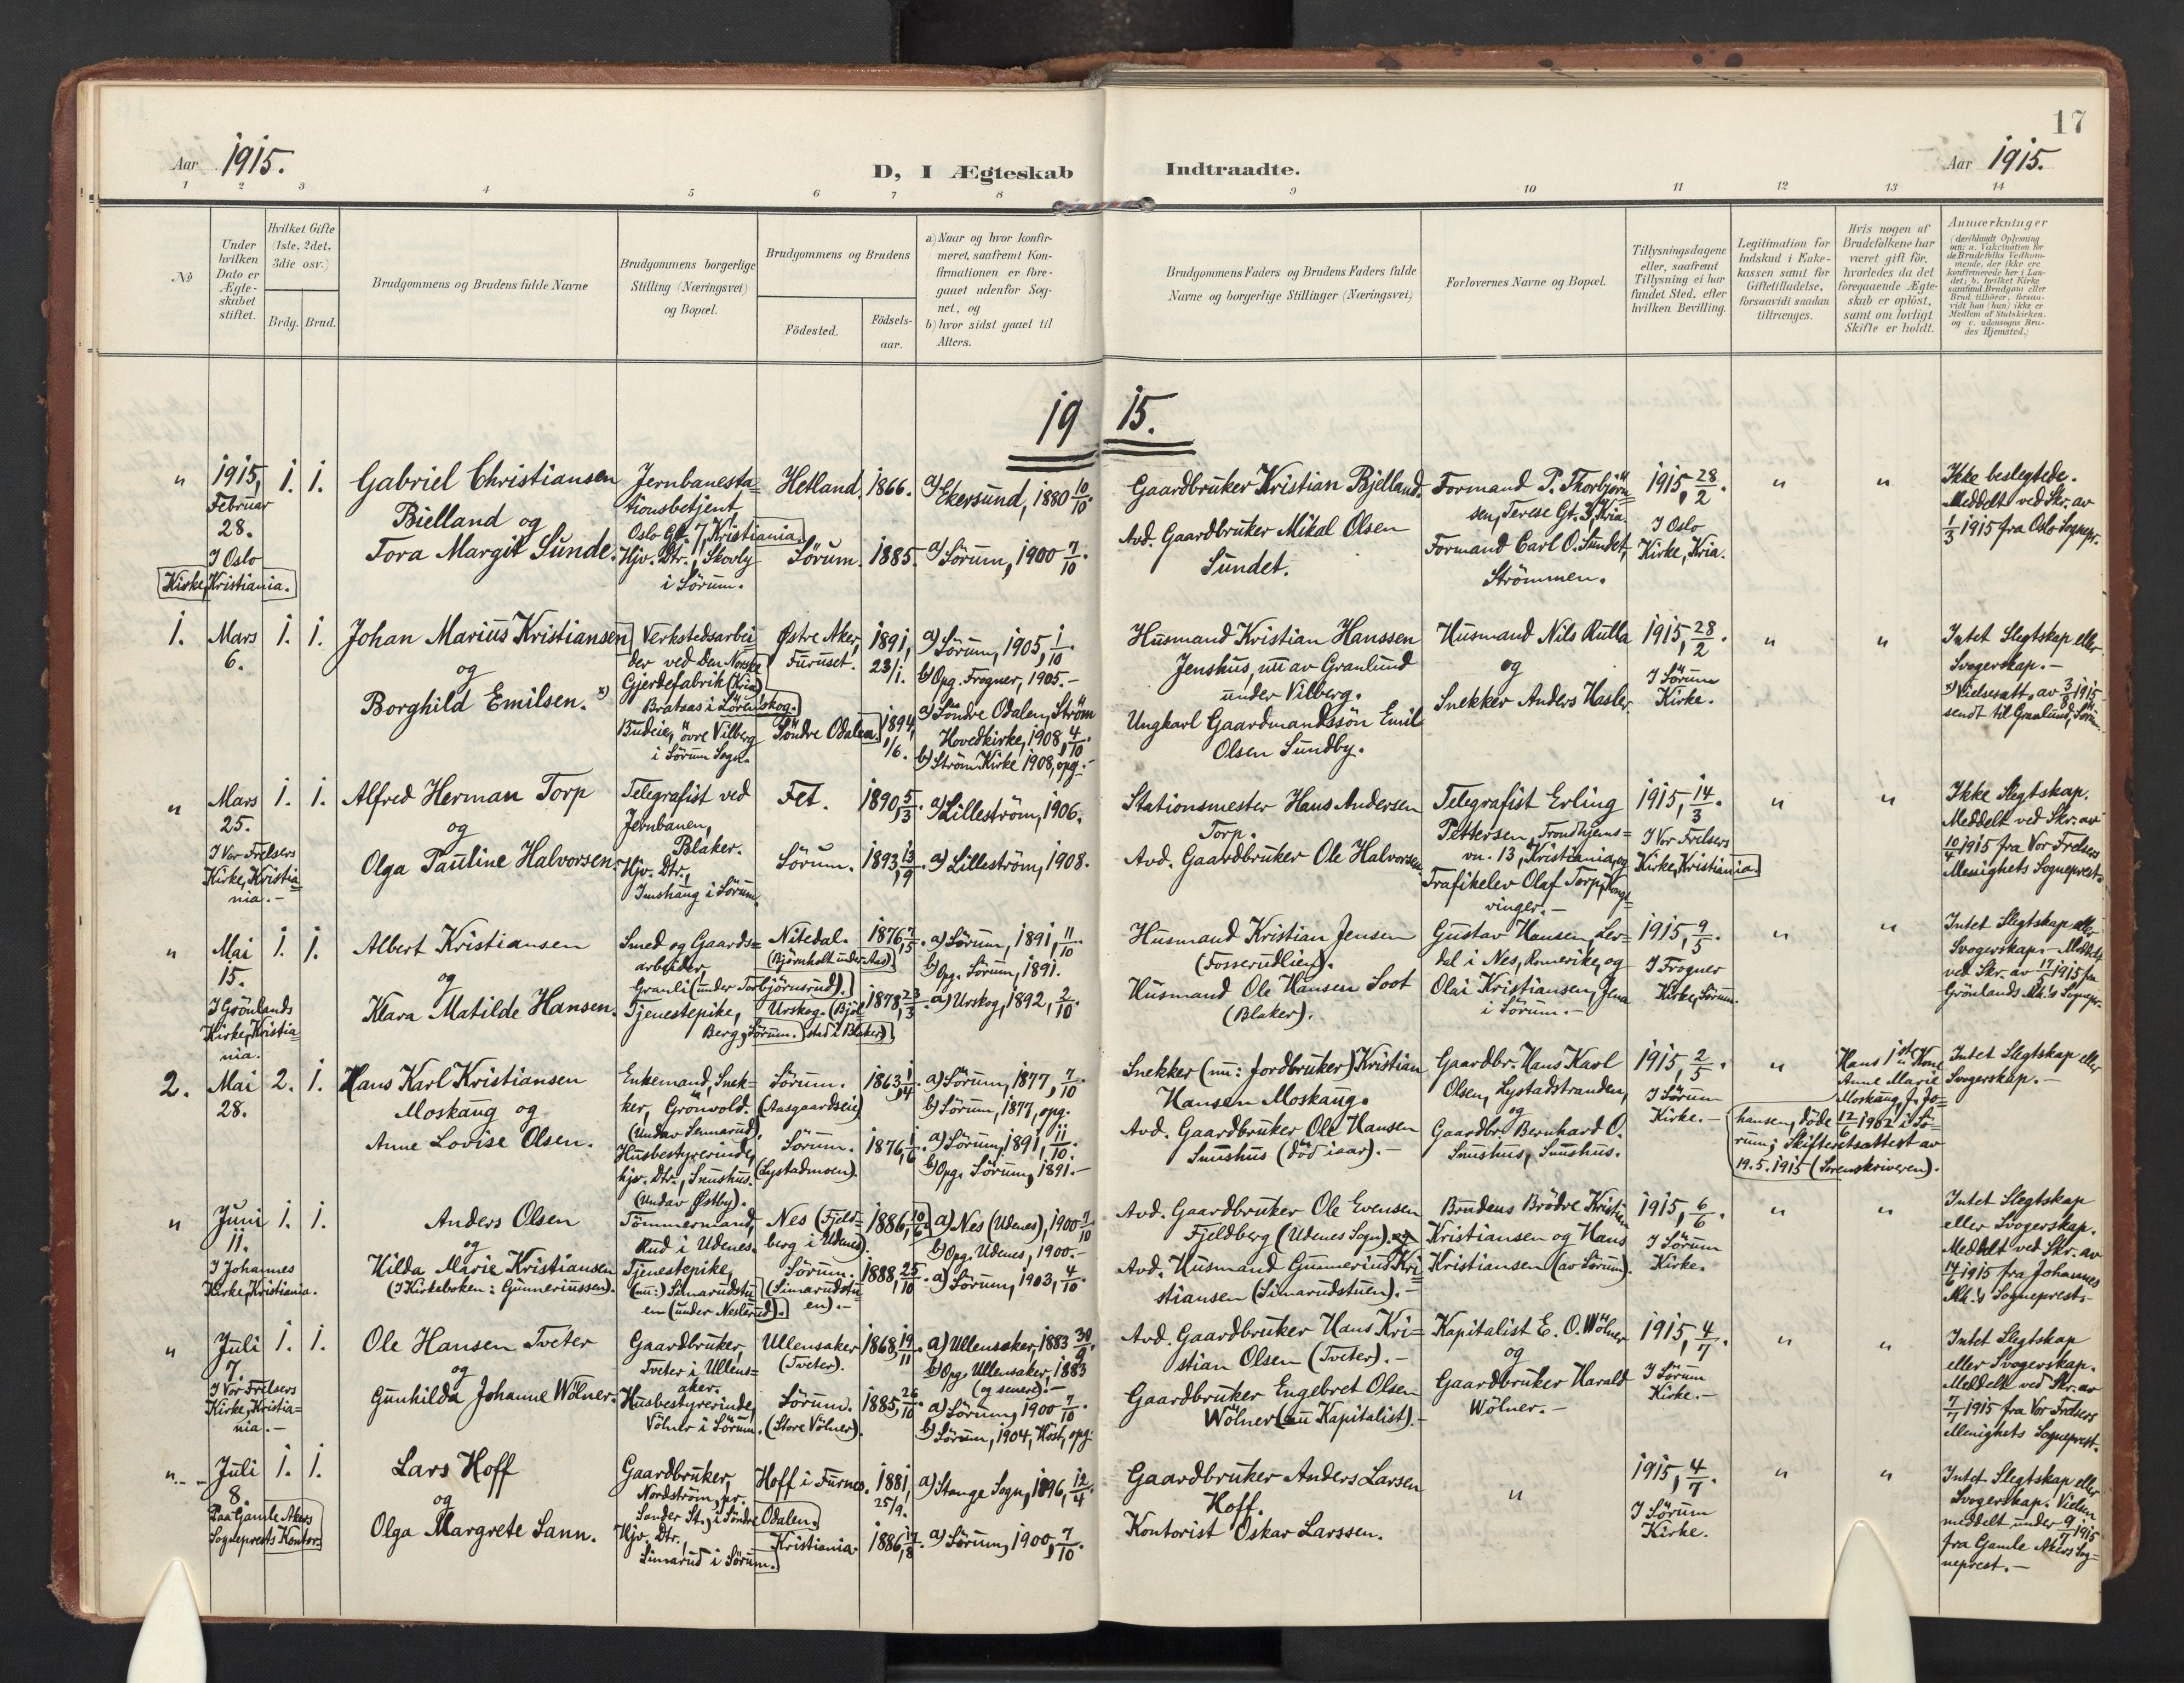 17
Aar 1915.
D, I Ægteskab Indtraadte.
Aar 1915.
1 2 3 4 5 6 7 8 9 10 11 12 13 14
No
Under hvilken Dato er Ægteskabet stiftet.
Hvilket Gifte (1ste, 2det, 3die osv.)
Brdg. Brud.
Brudgommens og Brudens fulde Navne
Brudgommens borgerlige Stilling (Næringsvei) og Bopæl.
Brudgommens og Brudens
Födested.
Födsels-aar.
a) Naar og hvor konfirmeret, saafremt Konfirmationen er foregaaet udenfor Sognet, og
b) hvor sidst gaaet til Alters.
Brudgommens Faders og Brudens Faders fulde Navne og borgerlige Stillinger (Næringsvei)
Forlovernes Navne og Bopæl.
Tillysningsdagene eller, saafremt Tillysning ei har fundet Sted, efter hvilken Bevilling.
Legitimation for Indskud i Enkekassen samt for Giftetilladelse, forsaavidt saadan tiltrænges.
Hvis nogen af Brudefolkene har været gift för, hvorledes da det foregaaende Ægteskab er oplöst, samt om lovligt Skifte er holdt.
Anmærkninger
(deriblandt Oplysning om: a. Vakcination for de Brudefolks Vedkommende, der ikke ere konfirmerede her i Landet; b. hvilket Kirkesamfund Brudgom eller Brud tilhörer, forsaavidt han (hun) ikke er Medlem af Statskirken, og c. udensogns Brudes Hjemsted.)
19 15.
" 1915, Februar 28. I Oslo Kirke, Kristiania.
1. 1.
Gabriel Christiansen
Bielland og
Tora Margit Sunde.
Jernbanestationsbetjent, Oslo Gt. 7, Kristiania.
Hjv. Dtr., Skovly i Sörum.
Hetland, 1866.
Sörum. 1885.
a) Ekersund, 1880 10/10.
a) Sörum, 1900 7/10.
Gaardbruker Kristian Bjelland.
Avd. Gaardbruker Mikal Olsen
Sundet.
Formand P. Thorbjörnsen, Terese Gt. 3, Kria.
Formand Carl O. Sundet, Strömmen.
1915, 28/2.
I Oslo Kirke, Kria.
" "
Ikke beslegtede.
Meddelt ved Skr. av
1/3 1915 fra Oslo Sognepr.
1. Mars 6.
1. 1.
Johan Marius Kristiansen
og
Borghild Emilsen. x)
Verkstedsarbeider ved Den Norske Gjerdefabrik (Kria)
Brataas i Lörenskog.
Budeie, övre Vilberg i Sörum Sogn.
Østre Aker, Furuset. 1891, 23/1.
Söndre Odalen. 1894, 1/6.
a) Sörum, 1905, 1/10.
b) Opg. Frogner, 1905.-
a) Söndre Odalen, Ström Hovedkirke, 1908, 4/10.
b) Ström Kirke 1908, opg.-
Husmand Kristian Hanssen
Jenshus, nu av Granlund
under Vilberg.
Ungkarl Gaardmandssön Emil
Olsen Sundby.
Husmand Nils Rulla
og
Snekker Anders Hasler.
1915, 28/2.
I Sörum Kirke.
" "
Intet Slegtskap eller
Svogerskap.-
x) Vielsesatt. av 3/8 1915
sendt til Granlund, Sörum.
" Mars 25. I Vor Frelsers Kirke, Kristiania.-
1. 1.
Alfred Herman Torp
og
Olga Pauline Halvorsen.
Telegrafist ved Jernbanen, Blaker.
Hjv. Dtr., Imshaug i Sörum.
Fet. 1890, 5/3.
Sörum. 1893, 13/9.
a) Lilleström, 1906.
a) Lilleström, 1908.
Stationsmester Hans Andersen
Torp.
Avd. Gaardbruker Ole Halvorsen.
Telegrafist Erling
Pettersen, Trondhjemsvn. 13, Kristiania, og
Trafikelev Olaf Torp, Kongsvinger.-
1915, 14/3.
I Vor Frelsers Kirke, Kristiania.
" "
Ikke Slegtskap.
Meddelt ved Skr. av
10/4 1915 fra Vor Frelsers
Menighets Sogneprest.
" Mai 15. I Grönlands Kirke, Kristiania.
1. 1.
Albert Kristiansen
og
Klara Matilde Hansen.
Smed og Gaardsarbeider, Granli (under Torbjörnsrud).
Tjenestepike, Berg, Sörum.
Nitedal. (Björnholt under Aas) 1876, 7/5.
Urskog. 1878, 23/3.
a) Sörum, 1891, 11/10.
b) Opg. Sörum, 1891.
a) Urskog, 1892, 2/10.
Husmand Kristian Jensen
(Fosserudlien).
Husmand Ole Hansen Soot
(Blaker).
Gustav Hansen, Lerdal i Nes, Romerike, og
Olai Kristiansen, Jena
i Sörum.-
1915, 9/5.
I Frogner Kirke, Sörum.
" "
Intet Slegtskap eller
Svogerskap.- Meddelt
ved Skr. av 17/5 1915 fra
Grönlands Mh.'s Sognepr.
2. Mai 28.
2. 1.
Hans Karl Kristiansen
Moskaug og
Anne Lovise Olsen.
Enkemand, Snekker, Grönvold.
(Undav Sennerud).
Husbestyrerinde, hjv. Dtr., Smushus.
(Undav Østby).
Sörum. (Aasgaardseie) 1863, 1/4.
Sörum. (Lystadmoen). 1876, 1/6.
a) Sörum, 1877, 7/10.
b) Sörum, 1877, opg.
a) Sörum, 1891, 11/10.
b) Opg. Sörum, 1891.-
Snekker (nu: Jordbruker) Kristian
Hansen Moskaug.
Avd. Gaardbruker Ole Hansen
Smushus (död iaar).-
Gaardbr. Hans Karl
Olsen, Lystadstranden,
og
Gaardbr. Bernhard O.
Smushus, Smushus.
1915, 2/5.
I Sörum Kirke.-
"
Hans 1ste Kone
Anne Marie
Moskaug, f. Johansen, döde 12/6 1902 i Sörum; Skifteretsattest av
19.5.1915 (Sorenskriveren).
Intet Slegtskap eller
Svogerskap.-
" Juni 11. I Johannes Kirke, Kristiania.
1. 1.
Anders Olsen
og
Hilda Marie Kristiansen
(I Kirkeboken: Gunneriussen).
Tömmermand, Rud i Udenes.
Tjenestepike, (nu:) Simarudstuen (under Neslerud).
Nes (Fjeldberg i Udenes). 1886, 10/6.
Sörum. (Simarudstuen).- 1888, 25/10.
a) Nes (Udenes), 1900 7/10
b) Opg. Udenes, 1900.-
a) Sörum, 1903, 4/10.
Avd. Gaardbruker Ole Evensen
Fjeldberg (Udenes Sogn).
Avd. Husmand Gunnerius Kristiansen (Simarudstuen).-
Brudens Brödre Kristian
Kristiansen og Hans
Kristiansen (av Sörum).
1915, 6/6.
I Sörum Kirke.
" "
Intet Slegtskap
eller Svogerskap.
Meddelt ved Skr. av
14/6 1915 fra Johannes
Mh.'s Sogneprest.-
" Juli 7. I Vor Frelsers Kirke, Kristiania.-
1. 1.
Ole Hansen Tveter
og
Gunhilda Johanne Wölner.
Gaardbruker, Tveter i Ullensaker.
Husbestyrerinde, Völner i Sörum.
Ullensaker (Tveter). 1868, 19/11.
Sörum. (Store Völner). 1885, 26/10.
a) Ullensaker, 1883 30/9.
b) Opg. Ullensaker, 1883 (og senere).-
a) Sörum, 1900 7/10.
b) Sörum, 1904, Höst, opg.
Avd. Gaardbruker Hans Kristian Olsen (Tveter).-
Gaardbruker Engebret Olsen
Wölner (nu Kapitalist).-
Kapitalist E. O. Wölner
og
Gaardbruker Harald
Wölner.-
1915, 4/7.
I Sörum Kirke.-
" "
Intet Slegtskap
eller Svogerskap.
Meddelt ved Skr. av
7/7 1915 fra Vor Frelsers
Menighets Sogneprest.
" Juli 8. Paa Gamle Akers Sogneprests Kontor.
1. 1.
Lars Hoff
og
Olga Margrete Sann.
Gaardbruker, Nordström, pr. Sander St., i Söndre Odalen.
Hjv. Dtr., Simarud i Sörum.
Hoff i Furnes. 1881, 25/9.
Kristiania. 1886, 17/8.
a) Stange Sogn, 1896, 12/4.
a) Sörum, 1900, 7/10.
Gaardbruker Anders Larsen
Hoff.
Kontorist Oskar Larssen.
"
1915, 4/7.
I Sörum Kirke.
" "
Intet Slegtskap eller
Svogerskap. Vielsen
meddelt under 9/7 1915
fra Gamle Akers Sogneprest.-